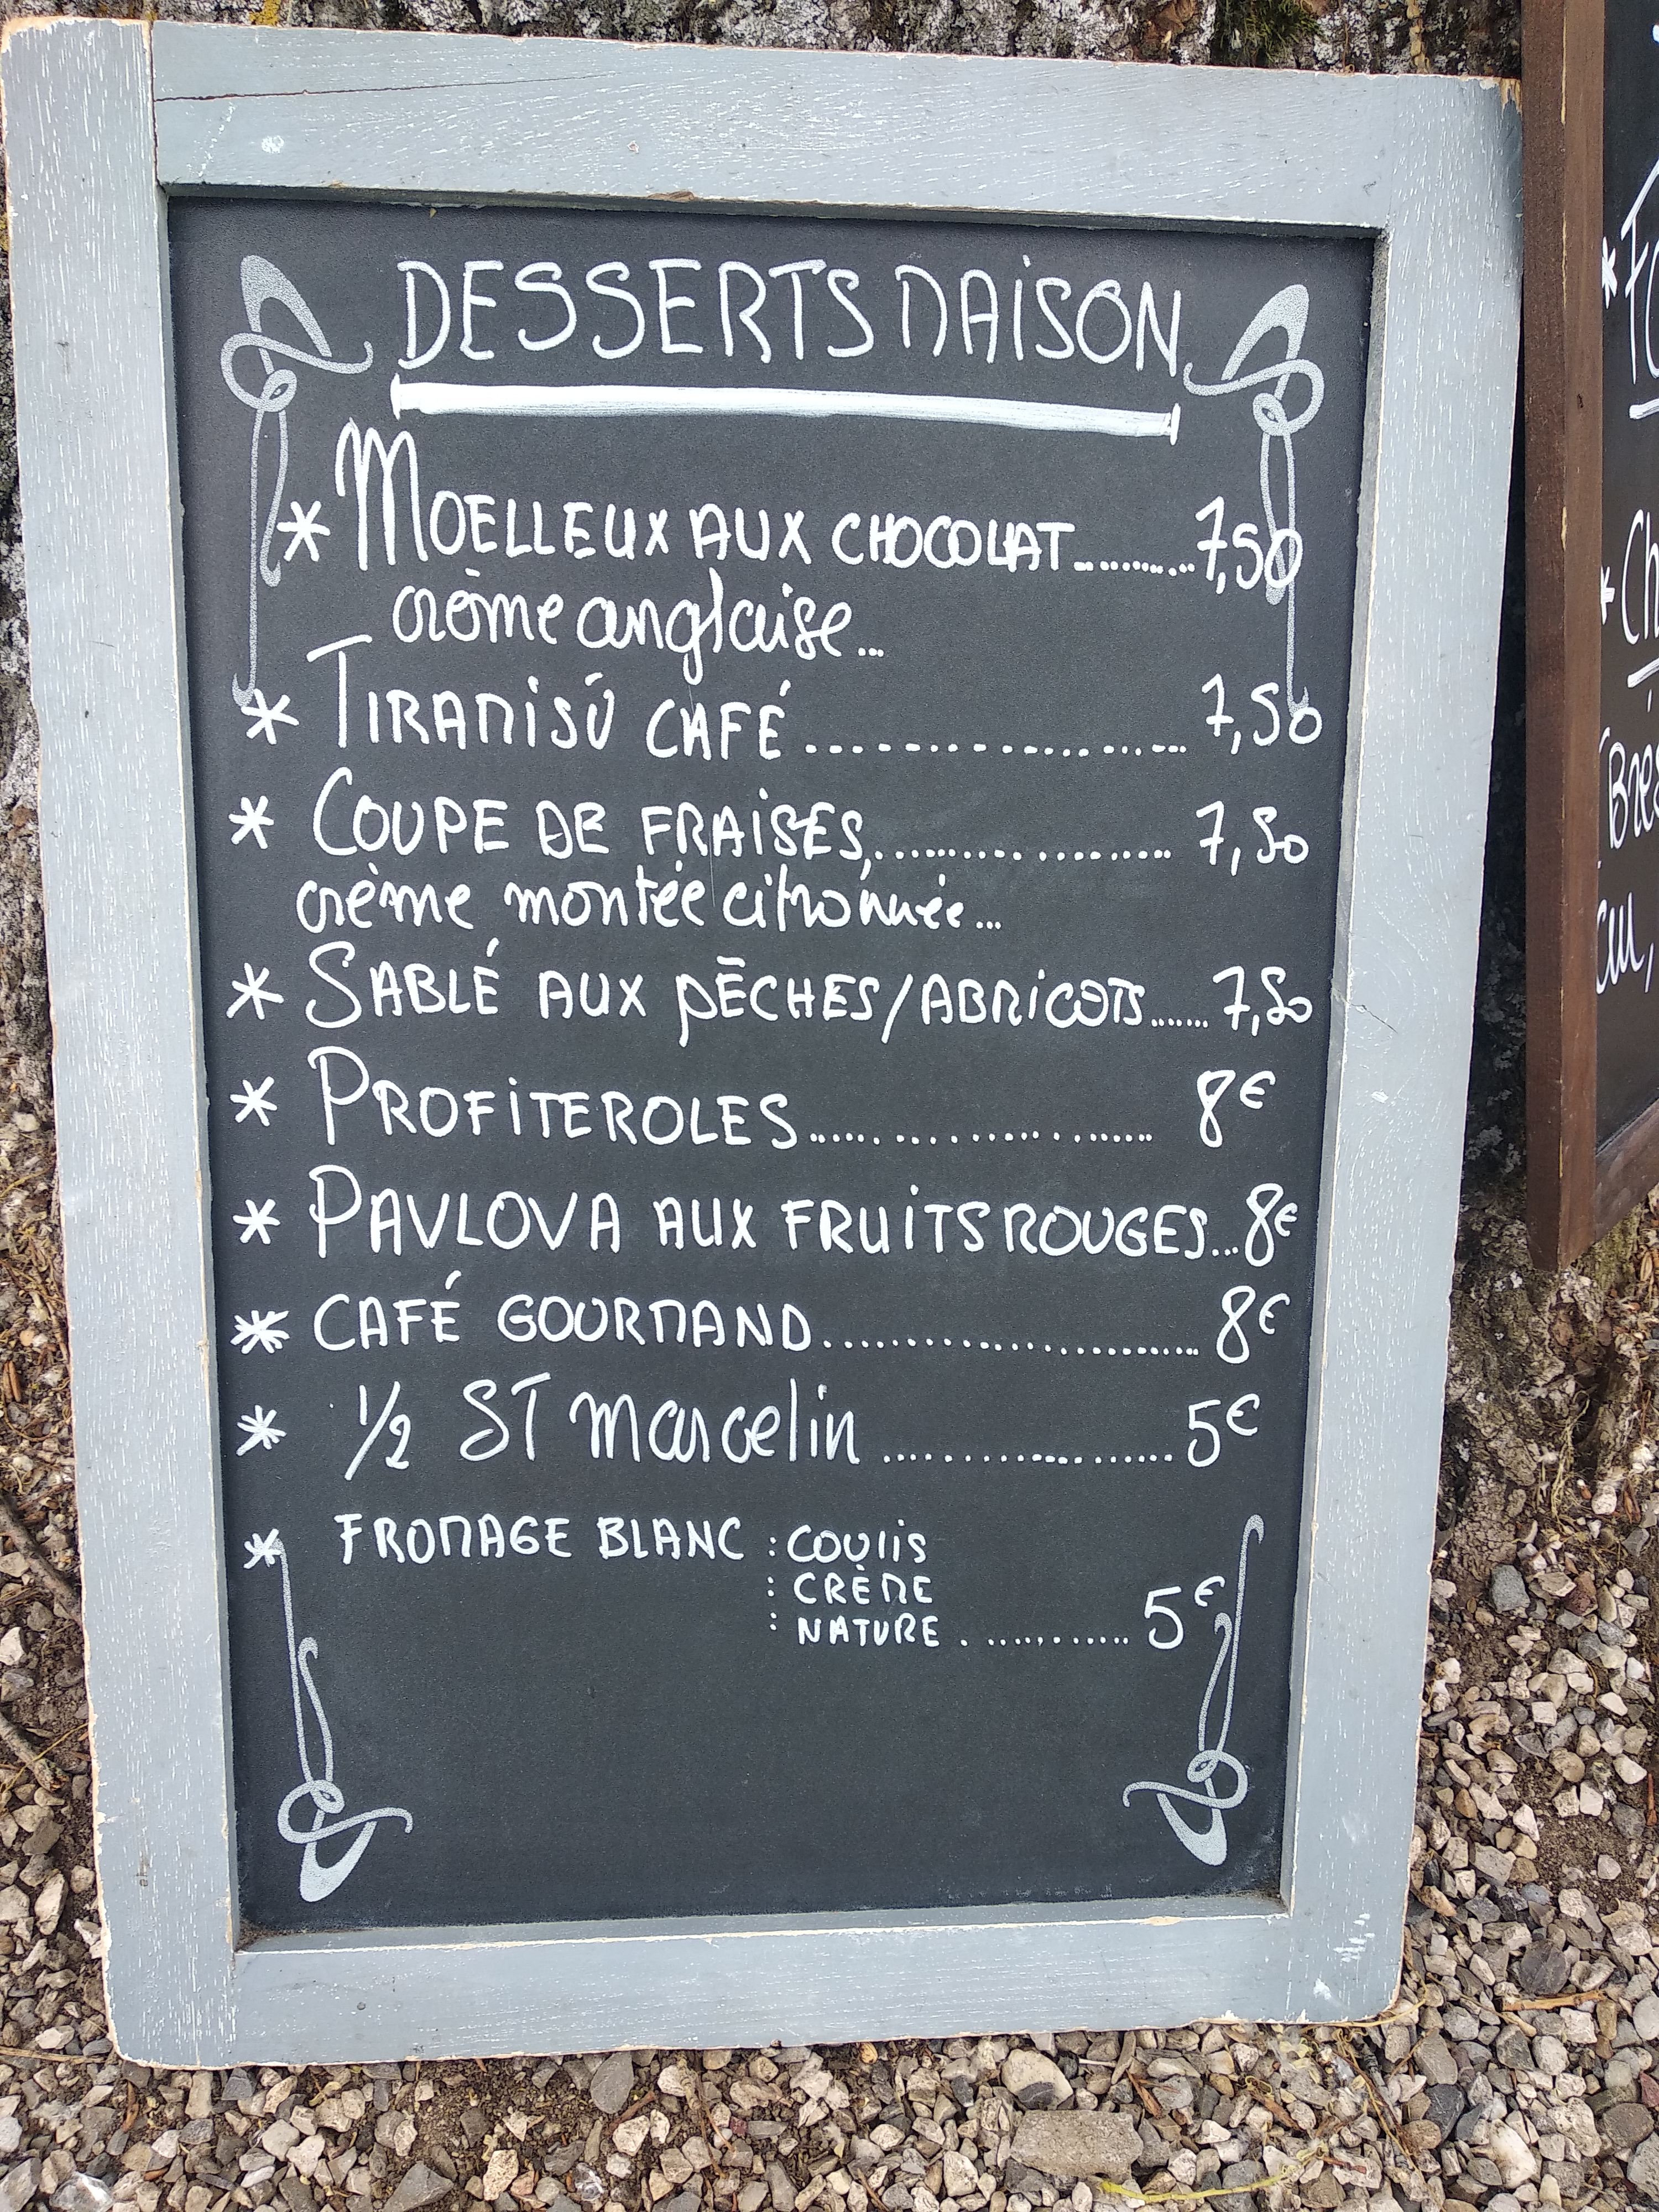 DESSERTS MAISON
* MOELLEUX AUX CHOCOLAT.......... 7,50
crème anglaise...
* TIRAMISÙ CAFÉ.................... 7,50
* COUPE DE FRAISES,................... 7,50
crème montée citronnée...
* SABLÉ AUX PÊCHES/ABRICOTS....... 7,50
* PROFITEROLES.................... 8€
* PAVLOVA AUX FRUITS ROUGES... 8€
* CAFÉ GOURMAND......................... 8€
* 1/2 ST Marcelin ...................... 5€
* FROMAGE BLANC : COULIS
: CRÈME
: NATURE . ........... 5€